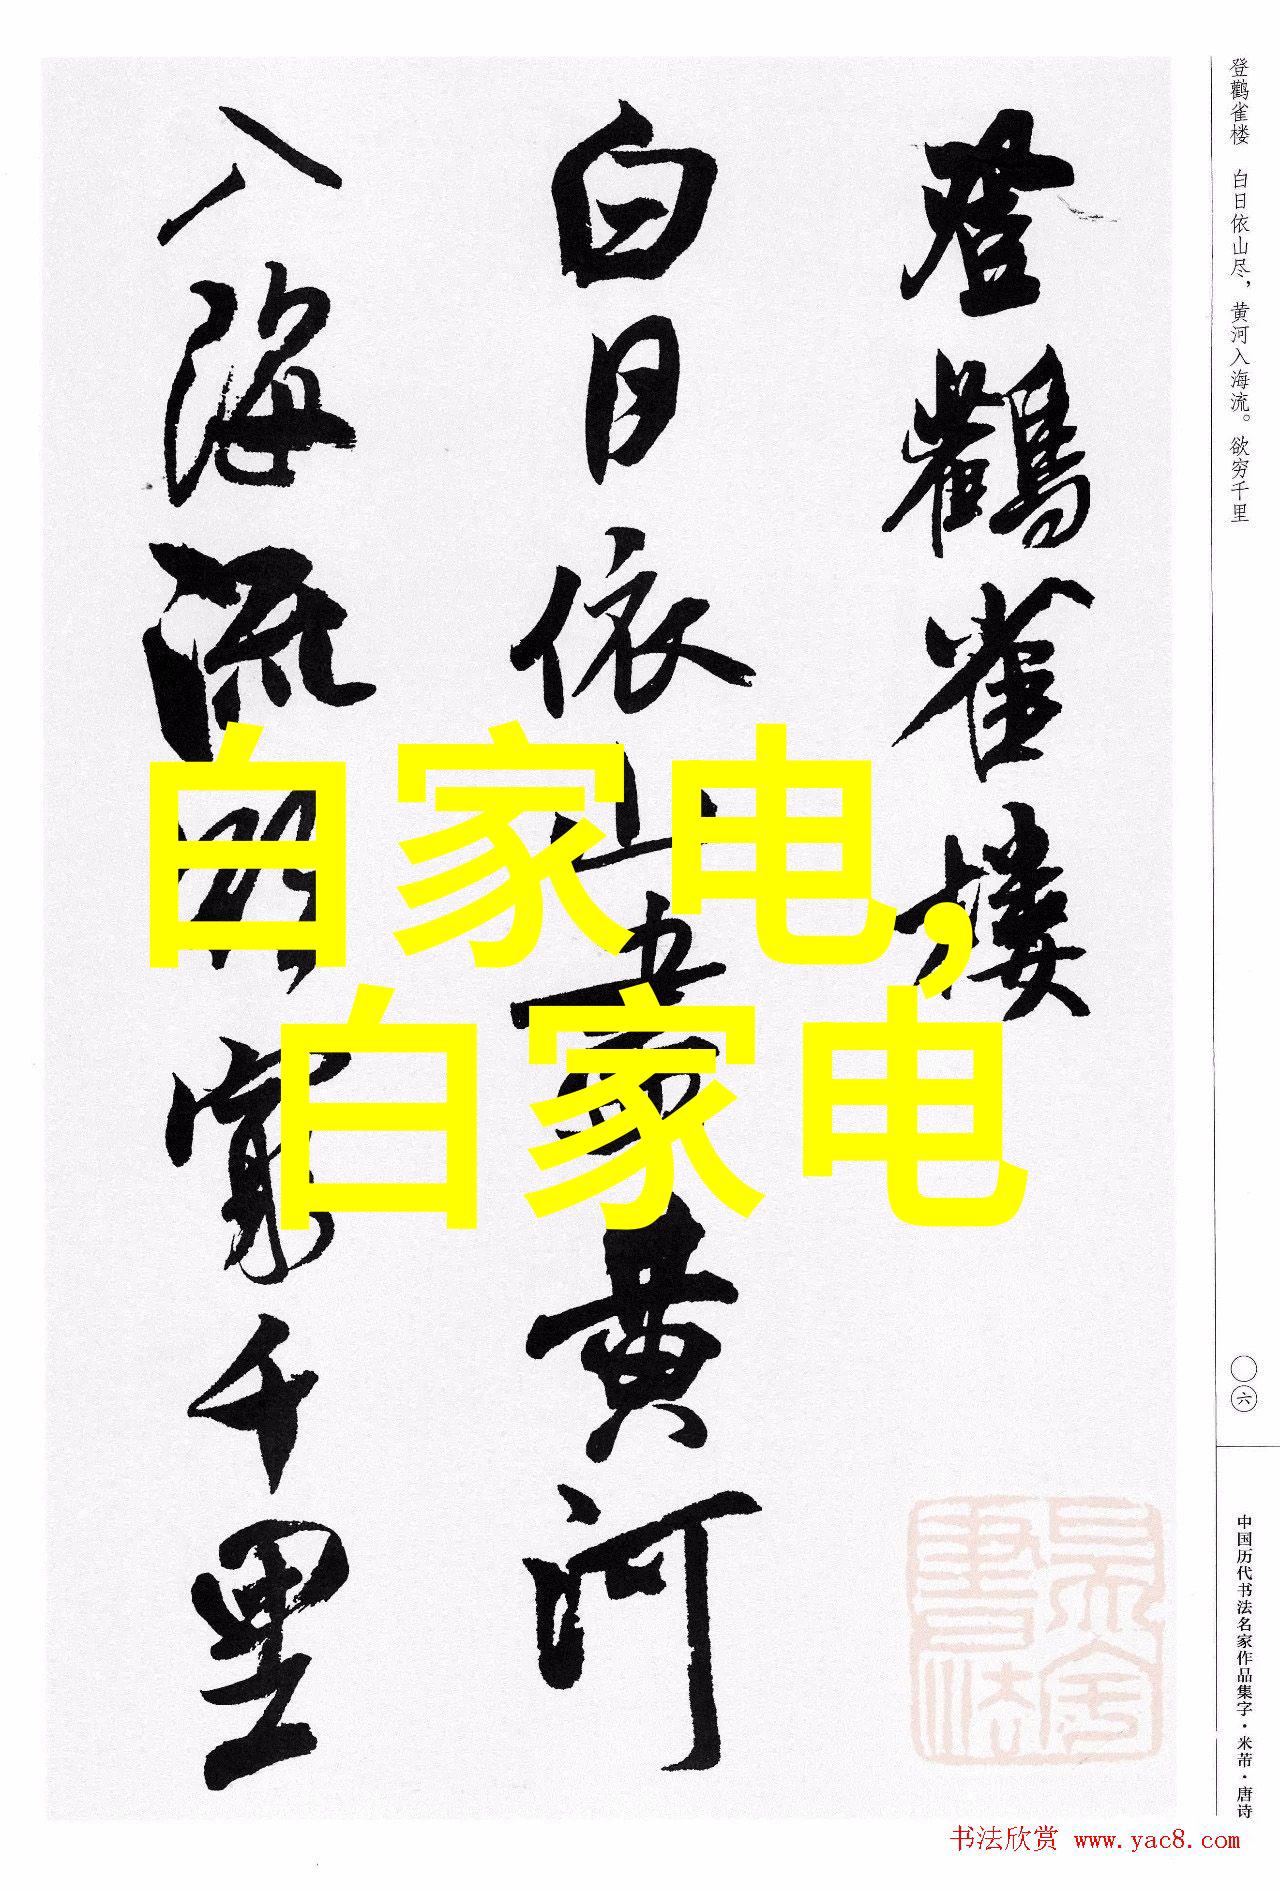 登鹳雀楼 白日依山尽，黄河入海流。欲穷千里
登鸛雀樓
白日依山盡黄河
入海流欲窮千里
白家电，
白家电
六
中国历代书法名家作品集字·米芾·唐诗
书法欣赏 www.yac8.com